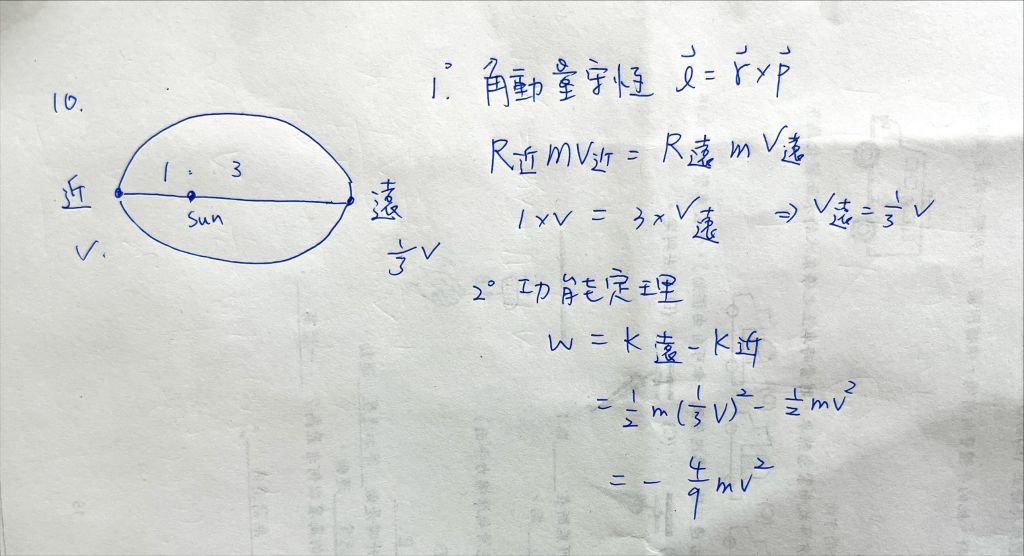 10.
近
V.
1 : 3
Sun
遠
1/3 V
1° 角動量守恆 l⃗ = r⃗ × p⃗
R近 m V近 = R遠 m V遠
1 × v = 3 × V遠 ⇒ V遠 = 1/3 V
2° 功能定理
W = K遠 - K近
= 1/2 m (1/3 V)² - 1/2 mv²
= - 4/9 mv²